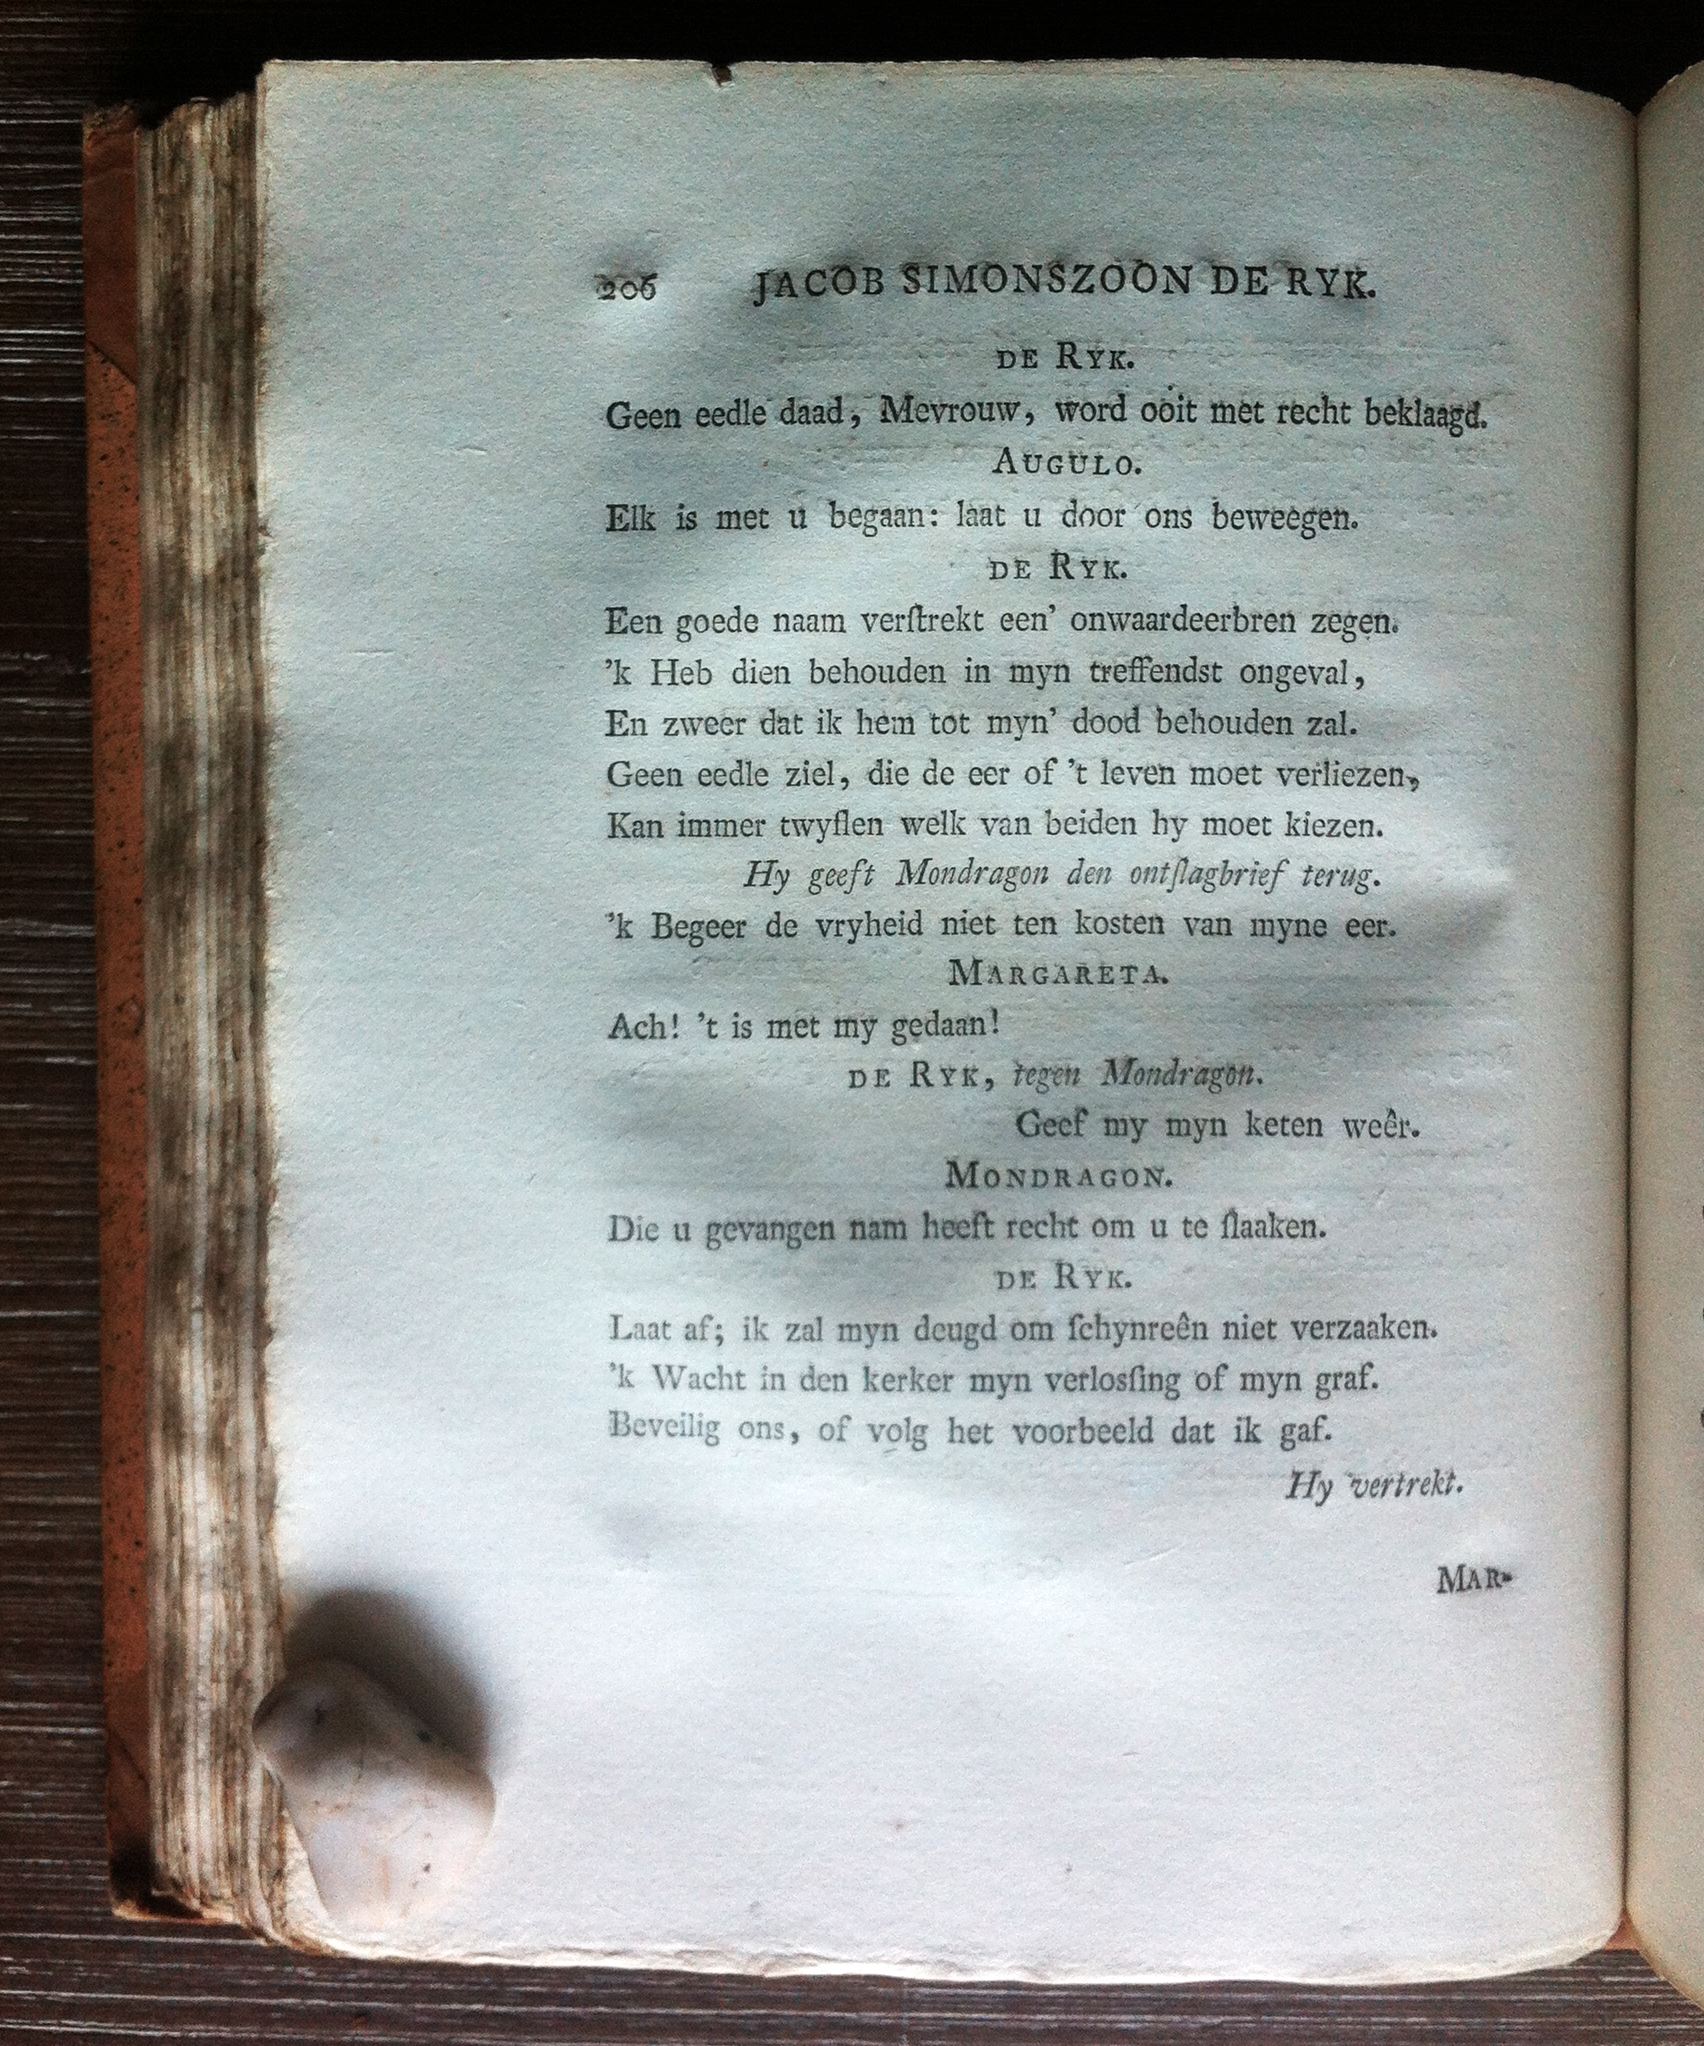 206 JACOB SIMONSZOON DE RYK.
DE RYK.
Geen eedle daad, Mevrouw, word ooit met recht beklaagd.
AUGULO.
Elk is met u begaan: laat u door ons beweegen.
DE RYK.
Een goede naam verſtrekt een’ onwaardeerbren zegen.
’k Heb dien behouden in myn treffendst ongeval,
En zweer dat ik hem tot myn’ dood behouden zal.
Geen eedle ziel, die de eer of ’t leven moet verliezen,
Kan immer twyflen welk van beiden hy moet kiezen.
Hy geeft Mondragon den ontſlagbrief terug.
’k Begeer de vryheid niet ten kosten van myne eer.
MARGARETA.
Ach! ’t is met my gedaan!
DE RYK, tegen Mondragon.
Geef my myn keten weêr.
MONDRAGON.
Die u gevangen nam heeft recht om u te ſlaaken.
DE RYK.
Laat af; ik zal myn deugd om ſchynreên niet verzaaken.
’k Wacht in den kerker myn verlosſing of myn graf.
Beveilig ons, of volg het voorbeeld dat ik gaf.
Hy vertrekt.
MAR-